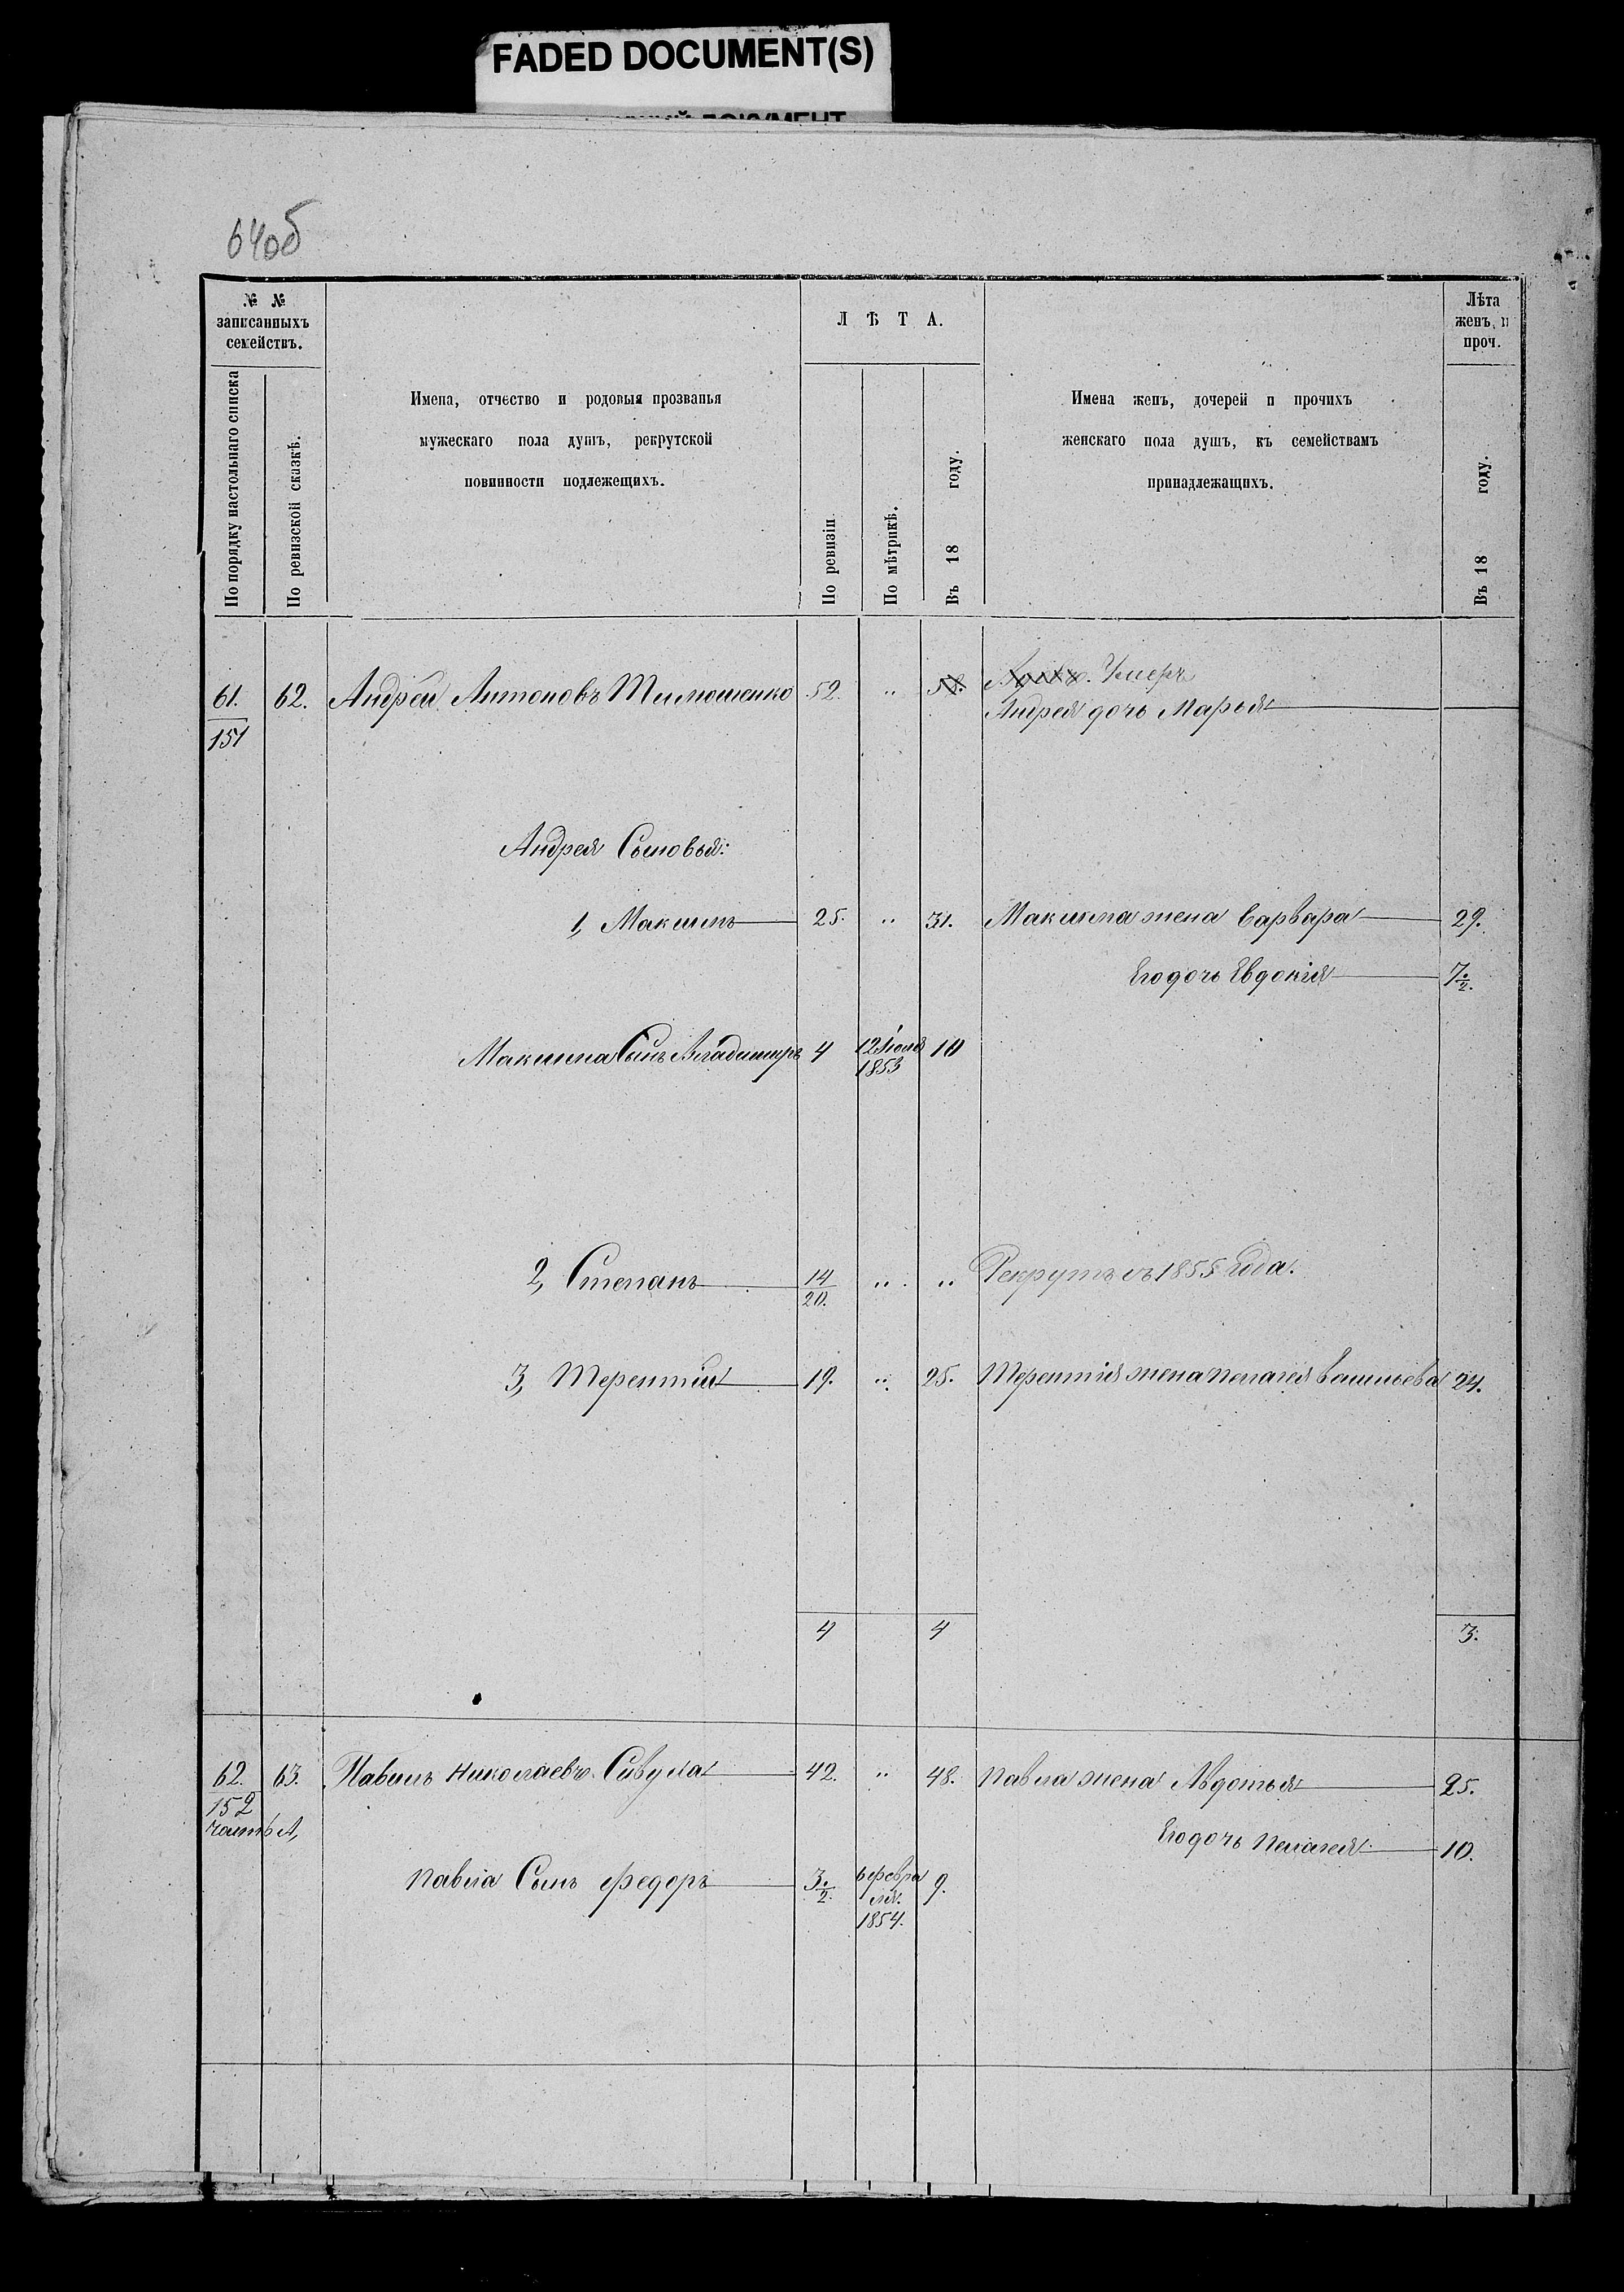 FADED DOCUMENT(S)
64об
№ №
записанныхъ
семействъ.
По порядку настольнаго списка
По ревизской сказкѣ.
Имена, отчество и родовыя прозванья
мужескаго пола душъ, рекрутской
повинности подлежещихъ.
Л Ѣ Т А.
По ревизіи
По мѣтрикѣ.
Въ 18 году.
Имена женъ, дочерей и прочихъ
женскаго пола душъ, къ семействамъ
принадлежащихъ.
Лѣта
женъ, и
проч.
Въ 18 году.
61. 62. Андрей Антоновъ Тимошенко 52. " 58. Умеръ
151 Андрея дочь Марья
Андрея Сыновья:
1, Максимъ 25. " 31. Максима жена Варвара 29.
Его дочь Евдокія 7 ./2.
Максима Сынъ Владимиръ 4 12 Іюля 10
1853
2, Степанъ 14/20. " " Рекрутъ съ 1855 года.
3, Терентій 19. " 25. Терентія жена Пелагея Васильева 24.
4 4 3.
62. 63. Павелъ Николаевъ Сивула 42. " 48. Павла жена Авдотья 25.
152
часть А, Его дочь Пелагея 10.
Павла Сынъ Федоръ 3 ./2. 6 февра 9.
ля.
1854.